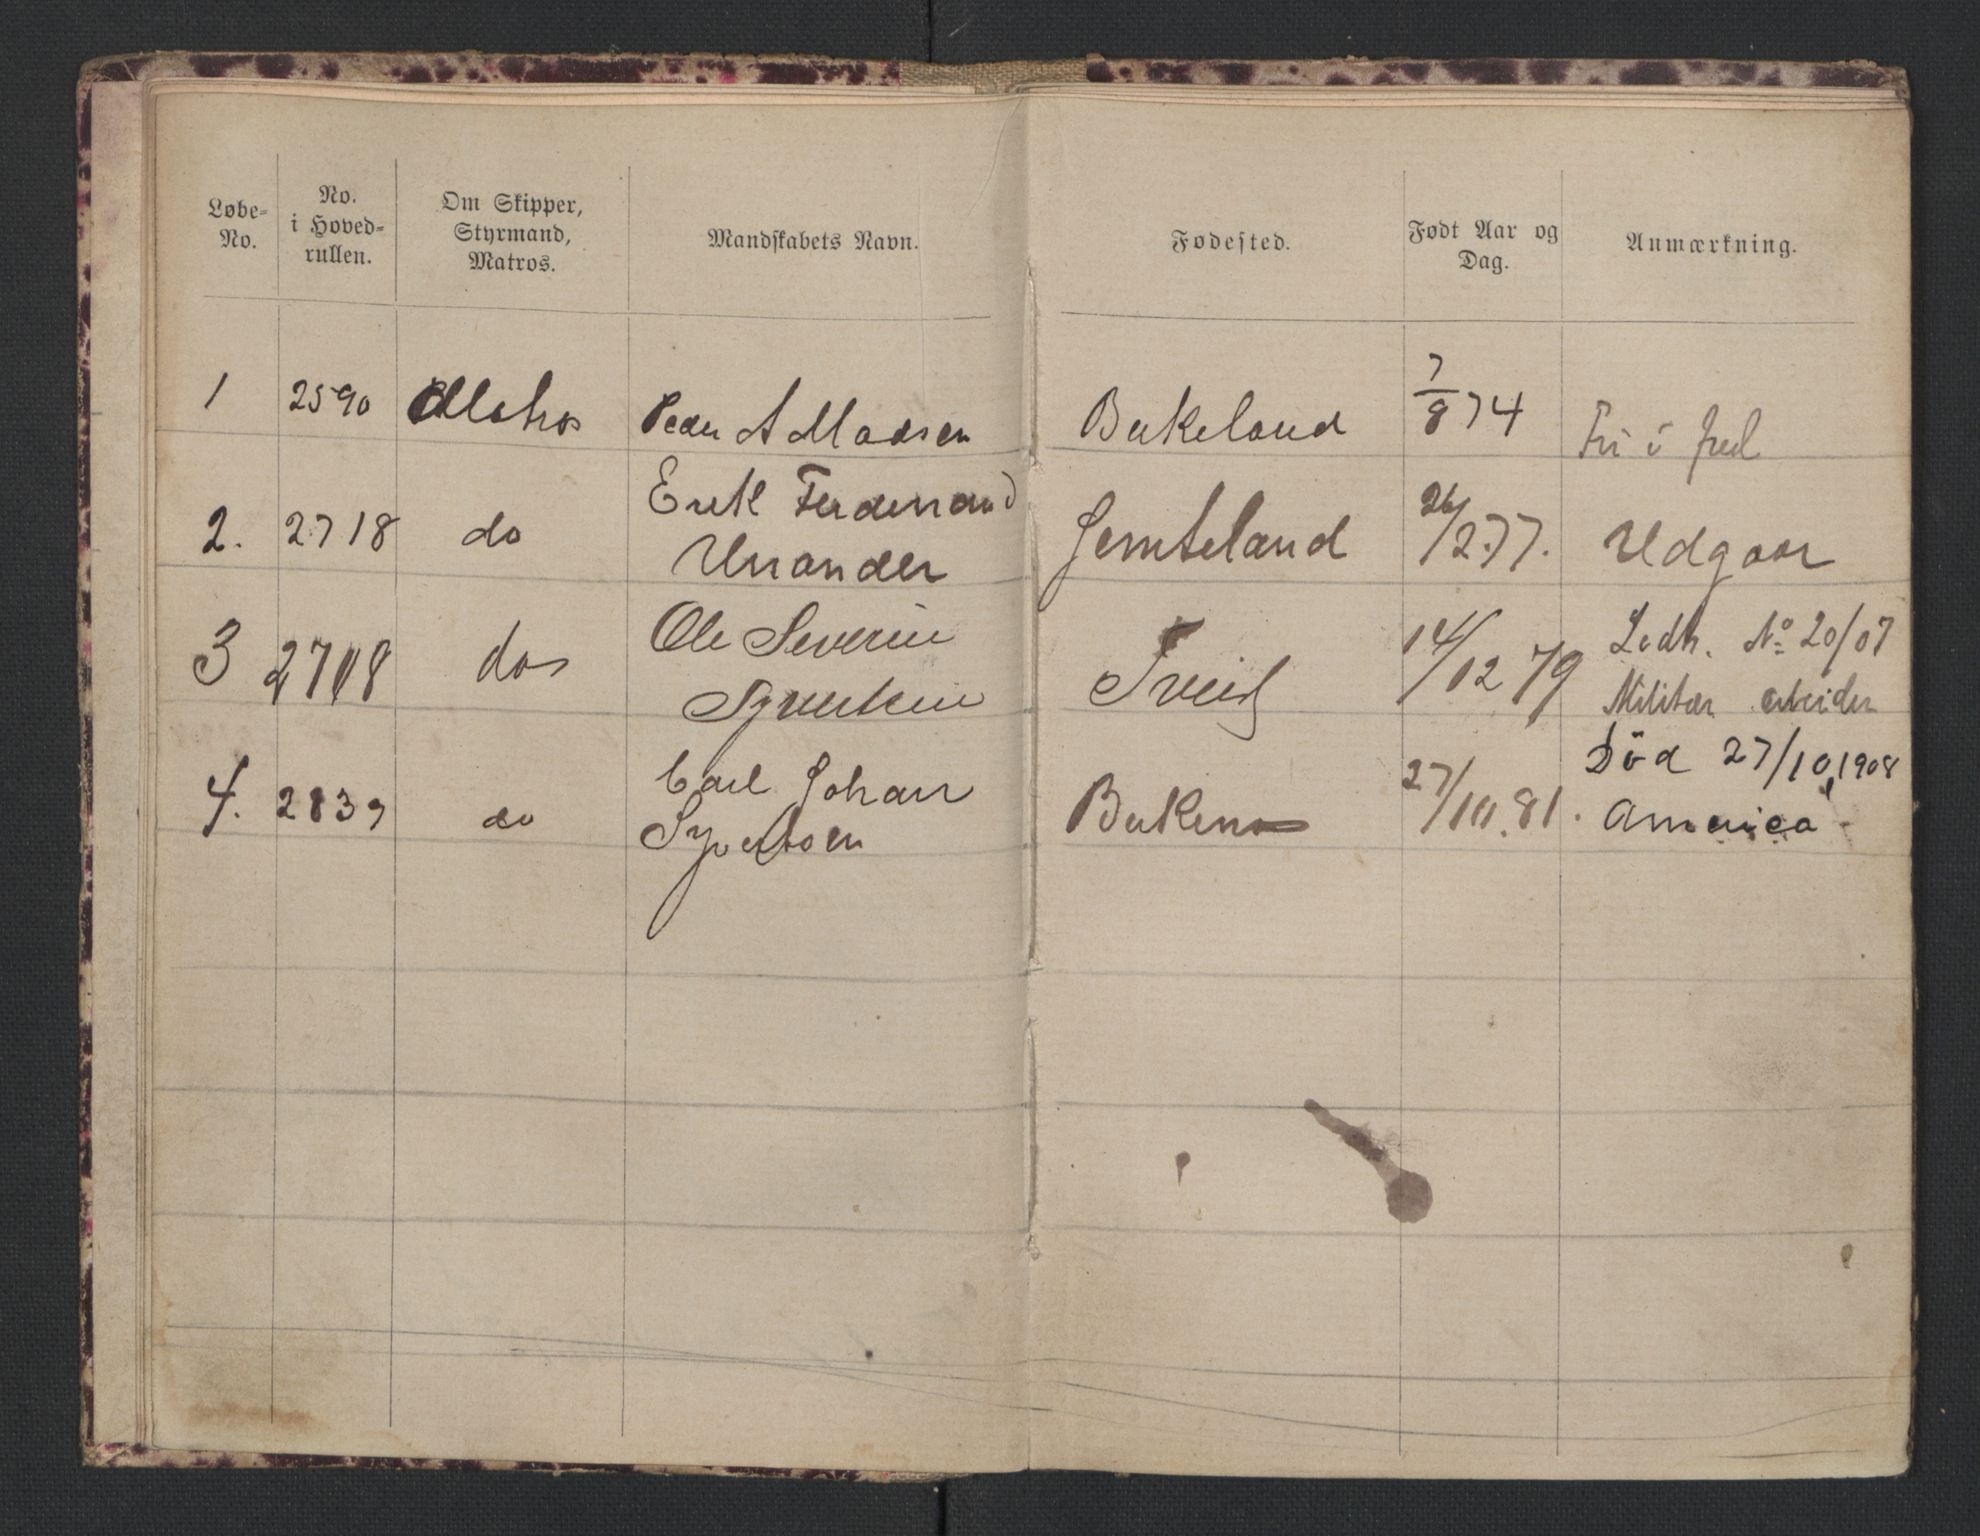 Løbe-
No.
No.
i Hoved-
rullen.
Om Skipper,
Styrmand,
Matros.
Mandskabets Navn.
Fødested.
Født Aar og
Dag.
Anmærkning.
1 2590 Matros Peder A Madsen Birkeland 7/8 74 Fri i fred
2. 2718 do Erik Ferdinand
Urander Jemteland 26/2.77. Udgaar
3 2708 dos Ole Severin
Syvertsen Tveid 14/12 79 Ledh. No 20/07
Militær arbeider
4. 2839 do Carl Johan
Syvertsen Birkenes 27/10.81. Död 27/10 1908
America